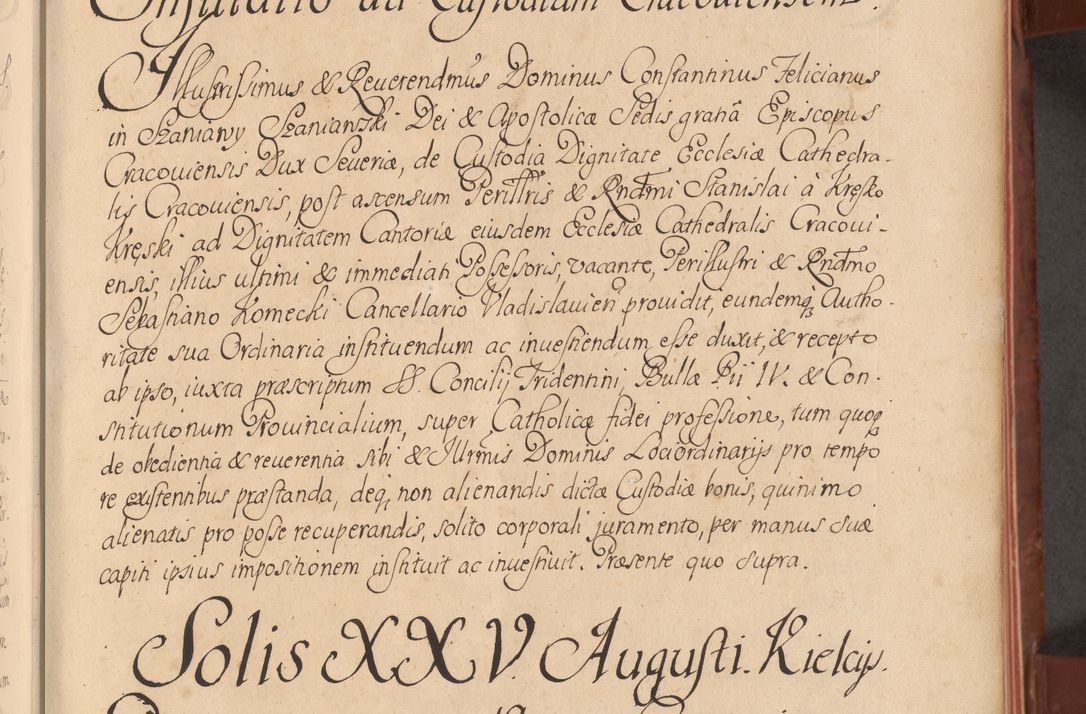 Institutio ad Custodiam Cracoviensem.
Illustrissimus & Reverendmus Dominus Constantinus Felicianus
in Szaniawy Szaniawski Dei & Apostolicæ Sedis gratiâ Episcopus
Cracoviensis Dux Severiæ, de Custodia Dignitate Ecclesiæ Cathedra-
lis Cracoviensis, post ascensum Perillris & Rndmi Stanislai à Kręsko
Kręski ad Dignitatem Cantoriæ eiusdem Ecclesiæ Cathedralis Cracovi-
ensis, illius ultimi & immediati Possessoris, vacante, Perillustri & Rndmo
Sebastiano Komecki Cancellario Vladislavien providit, eundemq Autho-
ritate sua Ordinaria instituendum ac investiendum esse duxit, & recepto
ab ipso, iuxta præscriptum SS. Concilij Tridentini, Bullæ Pii IV. & Con-
stitutionum Provincialium, super Catholicæ fidei professione, tum quoq
de obedientia & reverentia sibi & Illrmis Dominis Lociordinarijs pro tempo
re existentibus præstanda, deq non alienandis dictæ Custodiæ bonis, quinimo
alienatis pro posse recuperandis, solito corporali juramento, per manus suæ
capiti ipsius impositionem instituit ac investivit. Præsente quo supra.
Solis XXV. Augusti. Kielcijs.